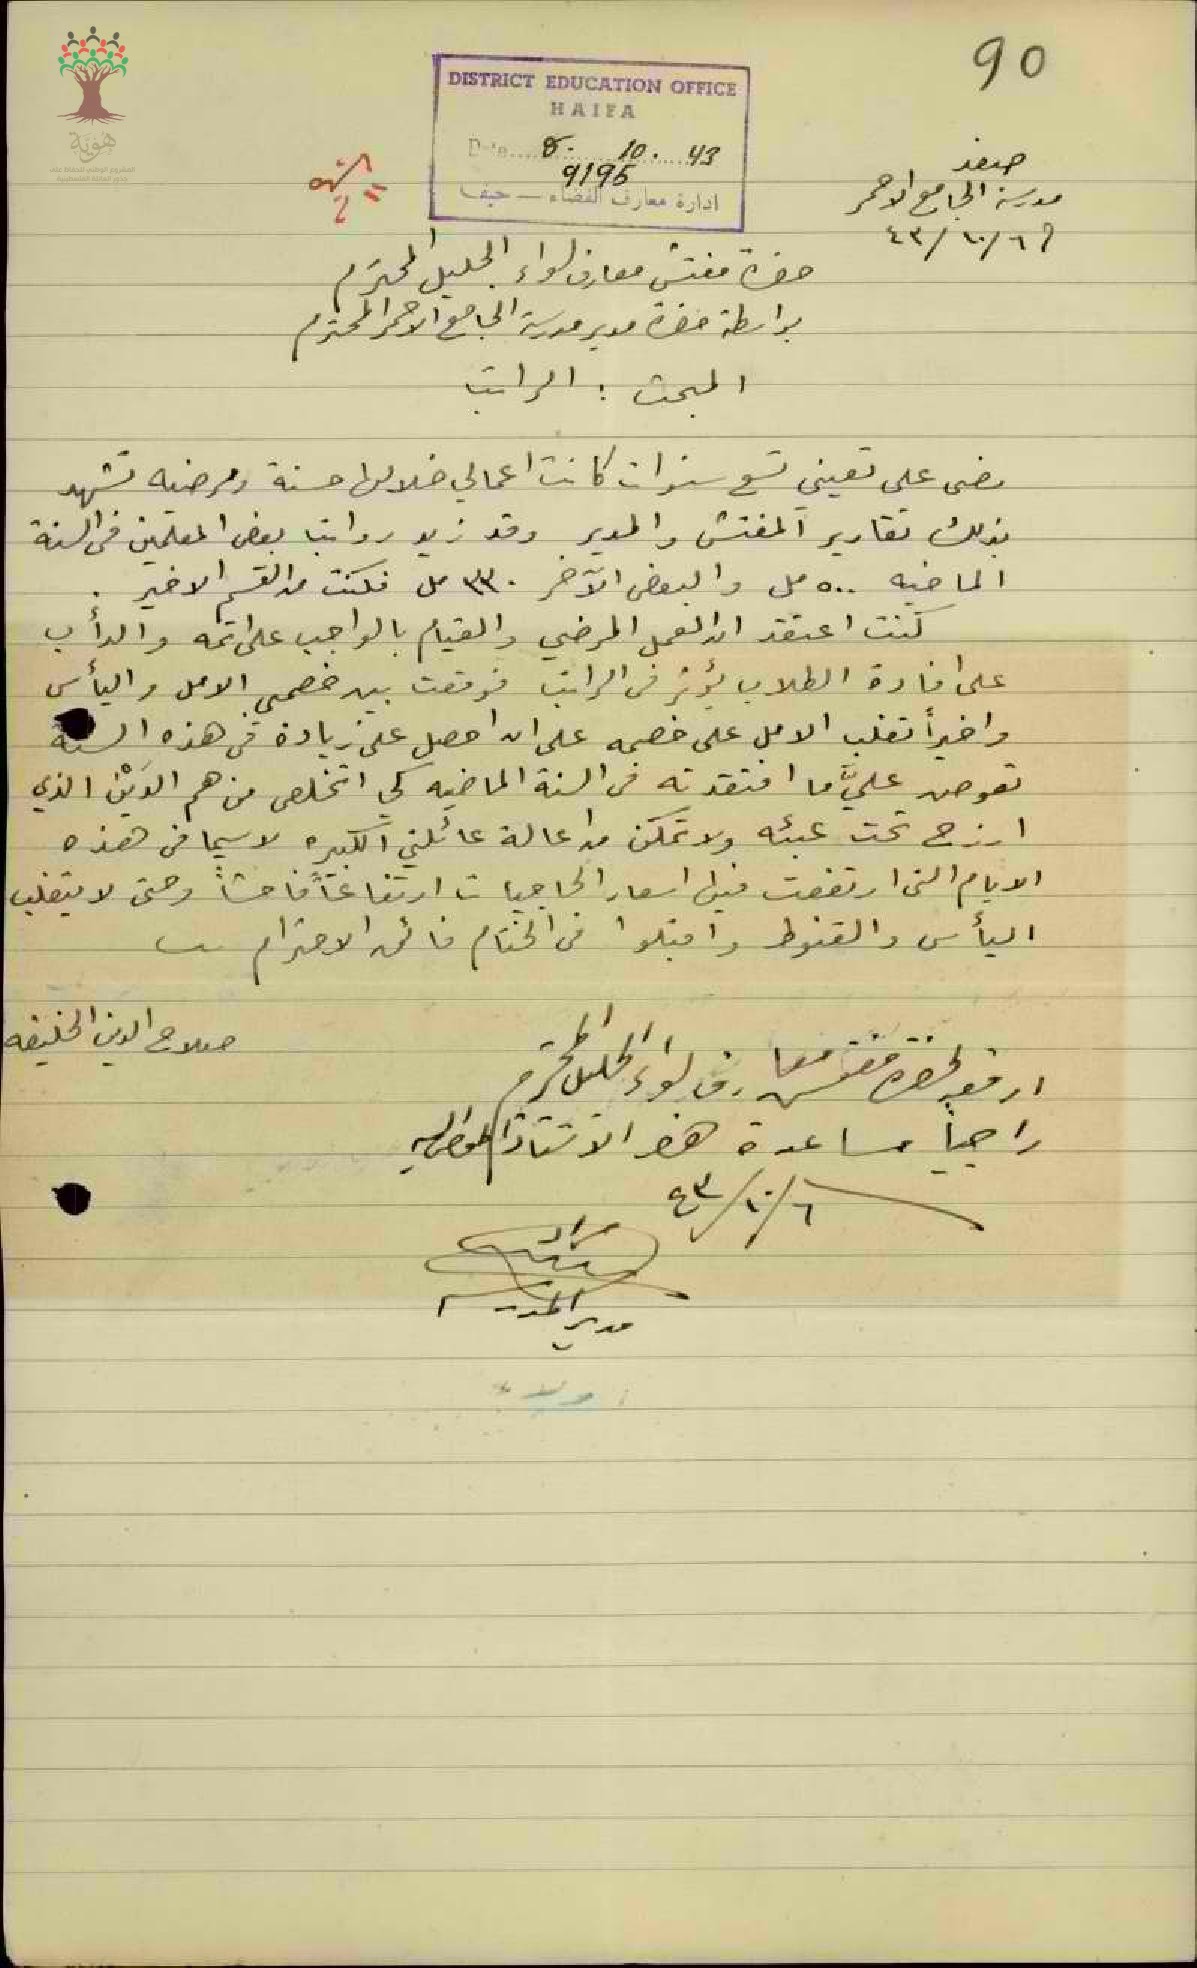 90
DISTRICT EDUCATION OFFICE
HAIFA
Date 8. 10. 43
9195
ادارة معارف القضاء — حيفا
هوية
المشروع الوطني للحفاظ على
جذور العائلة الفلسطينية
صفد
مدرسة الجامع الاحمر
٦/١٠/٤٣
حضرة مفتش معارف لواء الجليل المحترم
بواسطة حضرة مدير مدرسة الجامع الاحمر المحترم
المبحث : الراتب
مضى على تعييني تسع سنوات كانت اعمالي خلالها حسنة ومرضيه تشهد
بذلك تقارير المفتش والمدير وقد زيد رواتب بعض المعلمين في السنة
الماضيه ٥٠٠ مل والبعض الآخر ٣٣٠ مل فكنت من القسم الاخير .
كنت اعتقد ان العمل المرضي والقيام بالواجب على اتمه والدأب
على افادة الطلاب يؤثر في الراتب فوقعت بين خصمي الامل واليأس
واخيراً تغلب الامل على خصمه على ان احصل على زيادة في هذه السنة
تعوض عليَّ ما افتقدته في السنة الماضيه كي اتخلص من هم الدَيْن الذي
ارزح تحت عبئه ولاتمكن من اعالة عائلتي الكبيره لا سيما في هذه
الايام التي ارتفعت فيها اسعار الحاجيات ارتفاعاً فاحشاً وحتى لا يتغلب
اليأس والقنوط واقبلوا في الختام فائق الاحترام
صلاح الدين الخليفه
ارفعه لحضرة مفتش معارف لواء الجليل المحترم
راجياً مساعدة هذا الاستاذ
٦/١٠/٤٣
مدير المدرسة